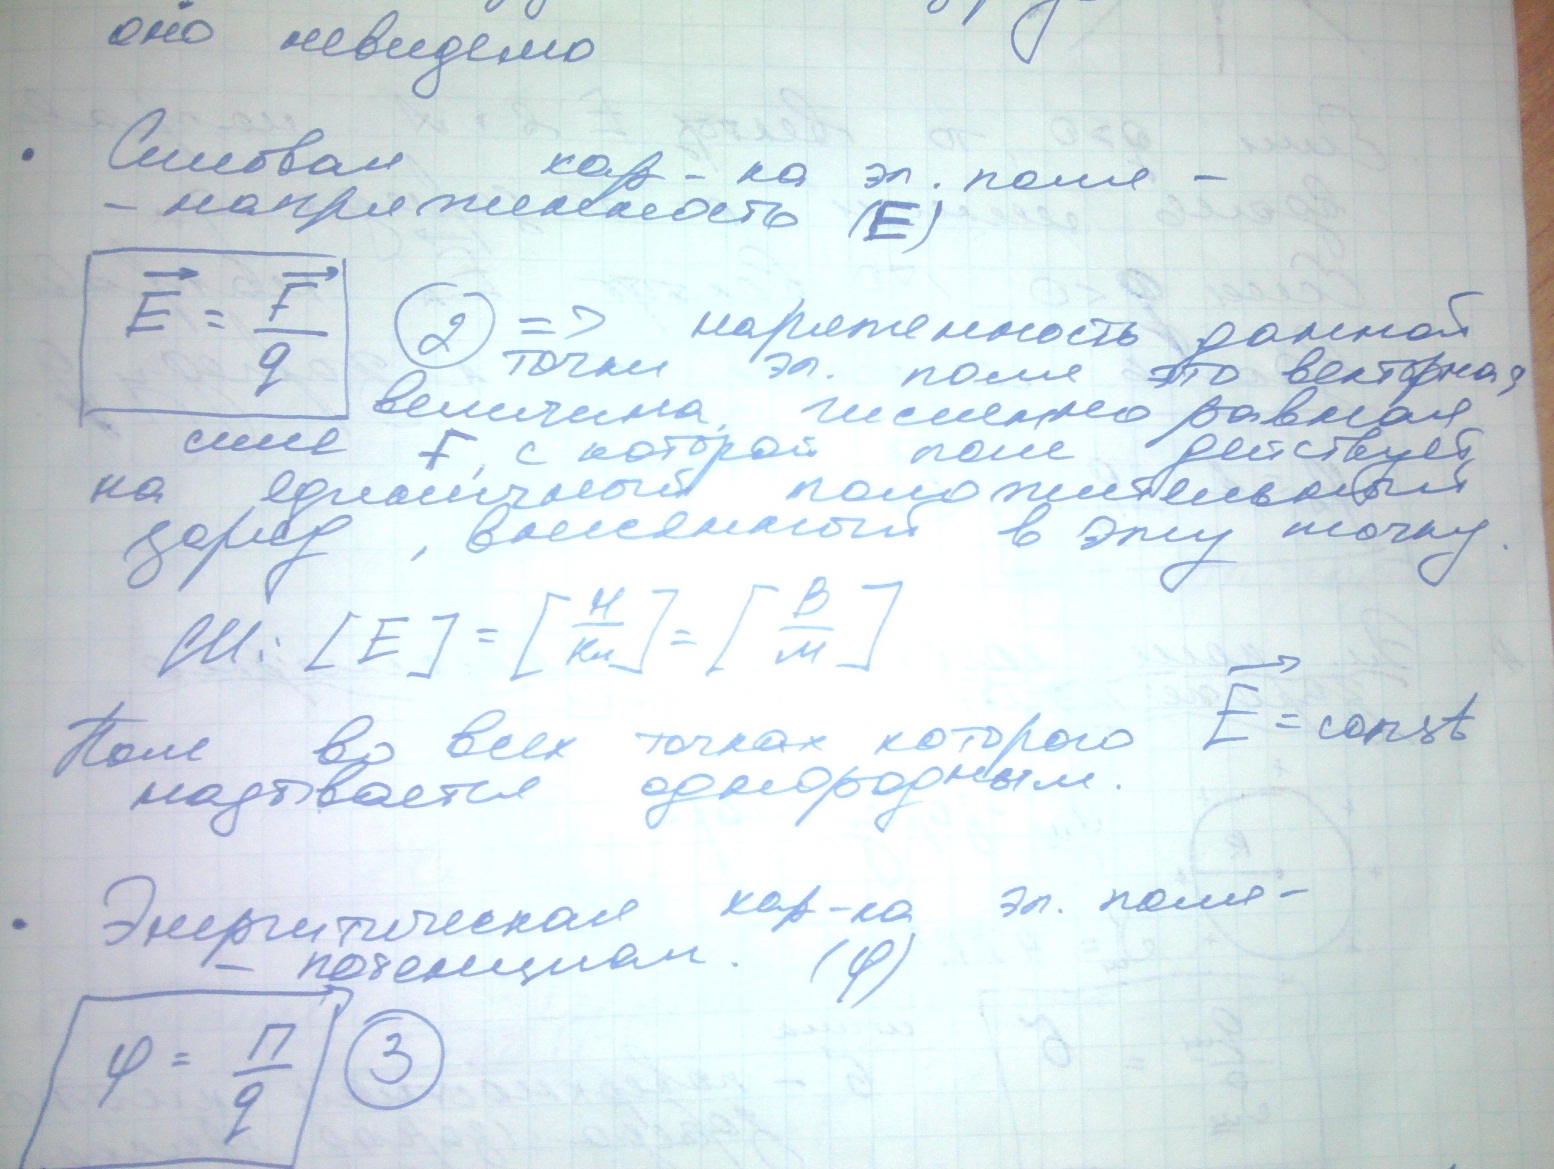 оно невидемо
• Силовая хар-ка эл. поля -
- напряженность (E)
E = F / q (2) => наряженность данной
точки эл. поля это векторная
величина, численно равная
силе F, с которой поле действует
на единичный положительный
заряд, внесенный в эту точку.
СИ: [E] = [Н / Кл] = [В / м]
Поле во всех точках которого E = const
надывается однородным.
• Энергитическая хар-ка эл. поля -
- потенциал. (φ)
φ = П / q (3)